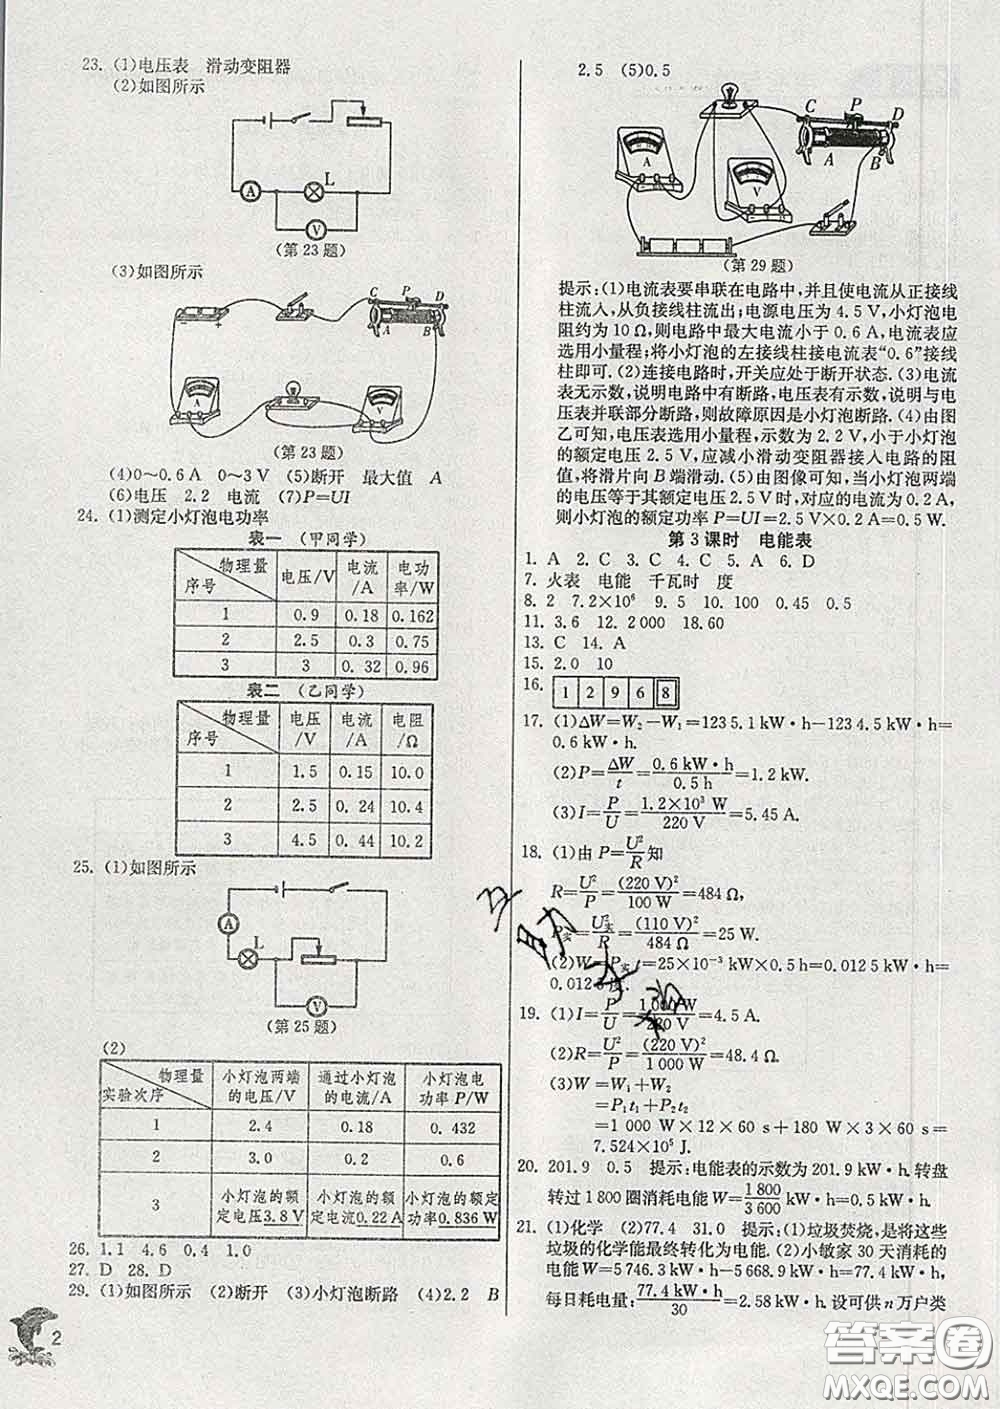 23. (1)电压表　滑动变阻器
(2)如图所示
A
L
V
(第23题)
(3)如图所示
C P D
A B
A
V
(第23题)
(4)0～0.6 A　0～3 V　(5)断开　最大值　A
(6)电压　2.2　电流　(7)P=UI
24. (1)测定小灯泡电功率
表一　(甲同学)
物理量 序号 电压/V 电流/A 电功率/W
1 0.9 0.18 0.162
2 2.5 0.3 0.75
3 3 0.32 0.96
表二　(乙同学)
物理量 序号 电压/V 电流/A 电阻/Ω
1 1.5 0.15 10.0
2 2.5 0.24 10.4
3 4.5 0.44 10.2
25. (1)如图所示
A
L
V
(第25题)
(2)
物理量 实验次序 小灯泡两端的电压/V 通过小灯泡的电流/A 小灯泡电功率 P/W
1 2.4 0.18 0.432
2 3.0 0.2 0.6
3 小灯泡的额定电压3.8 V 小灯泡的额定电流0.22 A 小灯泡的额定功率0.836 W
26. 1.1　4.6　0.4　1.0
27. D　28. D
29. (1)如图所示　(2)断开　(3)小灯泡断路　(4)2.2　B
2
2.5　(5)0.5
C P D
A B
A
V
(第29题)
提示:(1)电流表要串联在电路中,并且使电流从正接线
柱流入,从负接线柱流出;电源电压为4.5 V,小灯泡电
阻约为10 Ω,则电路中最大电流小于0.6 A,电流表应
选用小量程;将小灯泡的左接线柱接电流表“0.6”接线
柱即可.(2)连接电路时,开关应处于断开状态.(3)电流
表无示数,说明电路中有断路,电压表有示数,说明与电
压表并联部分断路,则故障原因是小灯泡断路.(4)由图
乙可知,电压表选用小量程,示数为2.2 V,小于小灯泡
的额定电压2.5 V,应减小滑动变阻器接入电路的阻
值,将滑片向B端滑动.(5)由图像可知,当小灯泡两端
的电压等于其额定电压2.5 V时,对应的电流为0.2 A,
则小灯泡的额定功率P=UI=2.5 V×0.2 A=0.5 W.
第3课时　电能表
1. A　2. C　3. C　4. C　5. A　6. D
7. 火表　电能　千瓦时　度
8. 2　7.2×10⁶　9. 5　10. 100　0.45　0.5
11. 3.6　12. 2 000　18.60
13. C　14. A
15. 2.0　10
16. 1 2 9 6 8
17. (1)ΔW=W₂−W₁=1235.1 kW·h−1234.5 kW·h=
0.6 kW·h.
(2)P=ΔW/t=0.6 kW·h/0.5 h=1.2 kW.
(3)I=P/U=1.2×10³ W/220 V=5.45 A.
18. (1)由P=U²/R知
R=U²/P=(220 V)²/100 W=484 Ω,
P实=U实²/R=(110 V)²/484 Ω=25 W.
(2)W=P实t=25×10⁻³ kW×0.5 h=0.0125 kW·h=
0.0125度.
19. (1)I=P/U=1 000 W/220 V=4.5 A.
(2)R=U²/P=(220 V)²/1 000 W=48.4 Ω.
(3)W=W₁+W₂
=P₁t₁+P₂t₂
=1 000 W×12×60 s+180 W×3×60 s=
7.524×10⁵ J.
20. 201.9　0.5　提示:电能表的示数为201.9 kW·h.转盘
转过1 800圈消耗电能W=1 800/3 600 kW·h=0.5 kW·h.
21. (1)化学　(2)77.4　31.0　提示:(1)垃圾焚烧,是将这些
垃圾的化学能最终转化为电能.(2)小敏家30天消耗的
电能W=5 746.3 kW·h−5 668.9 kW·h=77.4 kW·h,
每日耗电量:77.4 kW·h/30=2.58 kW·h.设可供n万户类
答案圈
MXQE.COM